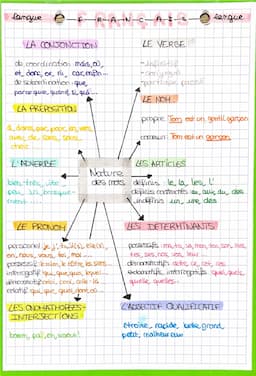 langue
FRANÇAIS
langue
LA CONJONCTION
de coordination mais, où,
et, donc, or, ni, car
de subordination que,
parce que, quand, si
LE VERBE
infinitif
conjugué
participe passé
LE NOM
propre Tom est un gentil garçon
commun Tom est un garçon
LA PRÉPOSITION
à, dans, par, pour, en, vers,
avec, de, sans, sous,
chez
L'ADVERBE
bien, très, vite
peu, ici, presque
Nature
des mots
LES ARTICLES
définis le, la, les, l'
définis contractés au, aux, du, des
indéfinis un, une, des
LE PRONOM
personnel je, j', tu, il(s), elle(s),
on, nous, vous, les, moi
possessif le mien, le nôtre, les siens
interrogatif qui, que, quoi, lequel
démonstratif ceci, cela, celle-là
relatif qui, que, quoi, dont, où
LES DETERMINANTS
possessifs ma, ta, sa, mon, ton, son, mes,
tes, ses, nos, vos, leur
démonstratifs cette, ce, cet, ces
exclamatifs, interrogatifs quel, quels,
quelle, quelles
LES ONOMATOPÉES-
INTERSECTIONS
boum, paf, oh, waouh!
L'ADJECTIF QUALIFICATIF
étroite, rapide, belle, grand,
petit, malheureux